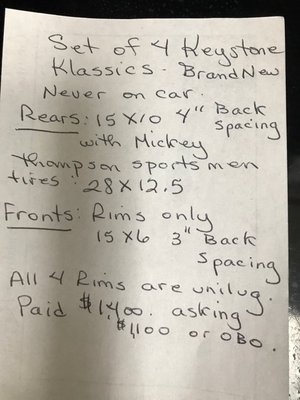 Set of 4 Keystone
Klassics. Brand New
Never on car.
Rears: 15 X 10 4" Back
Spacing
with Mickey
Thompson sportsmen
tires: 28 X 12.5
Fronts: Rims only
15 X 6 3" Back
Spacing
All 4 Rims are unilug.
Paid $1,400. asking
$1,100 or OBO.